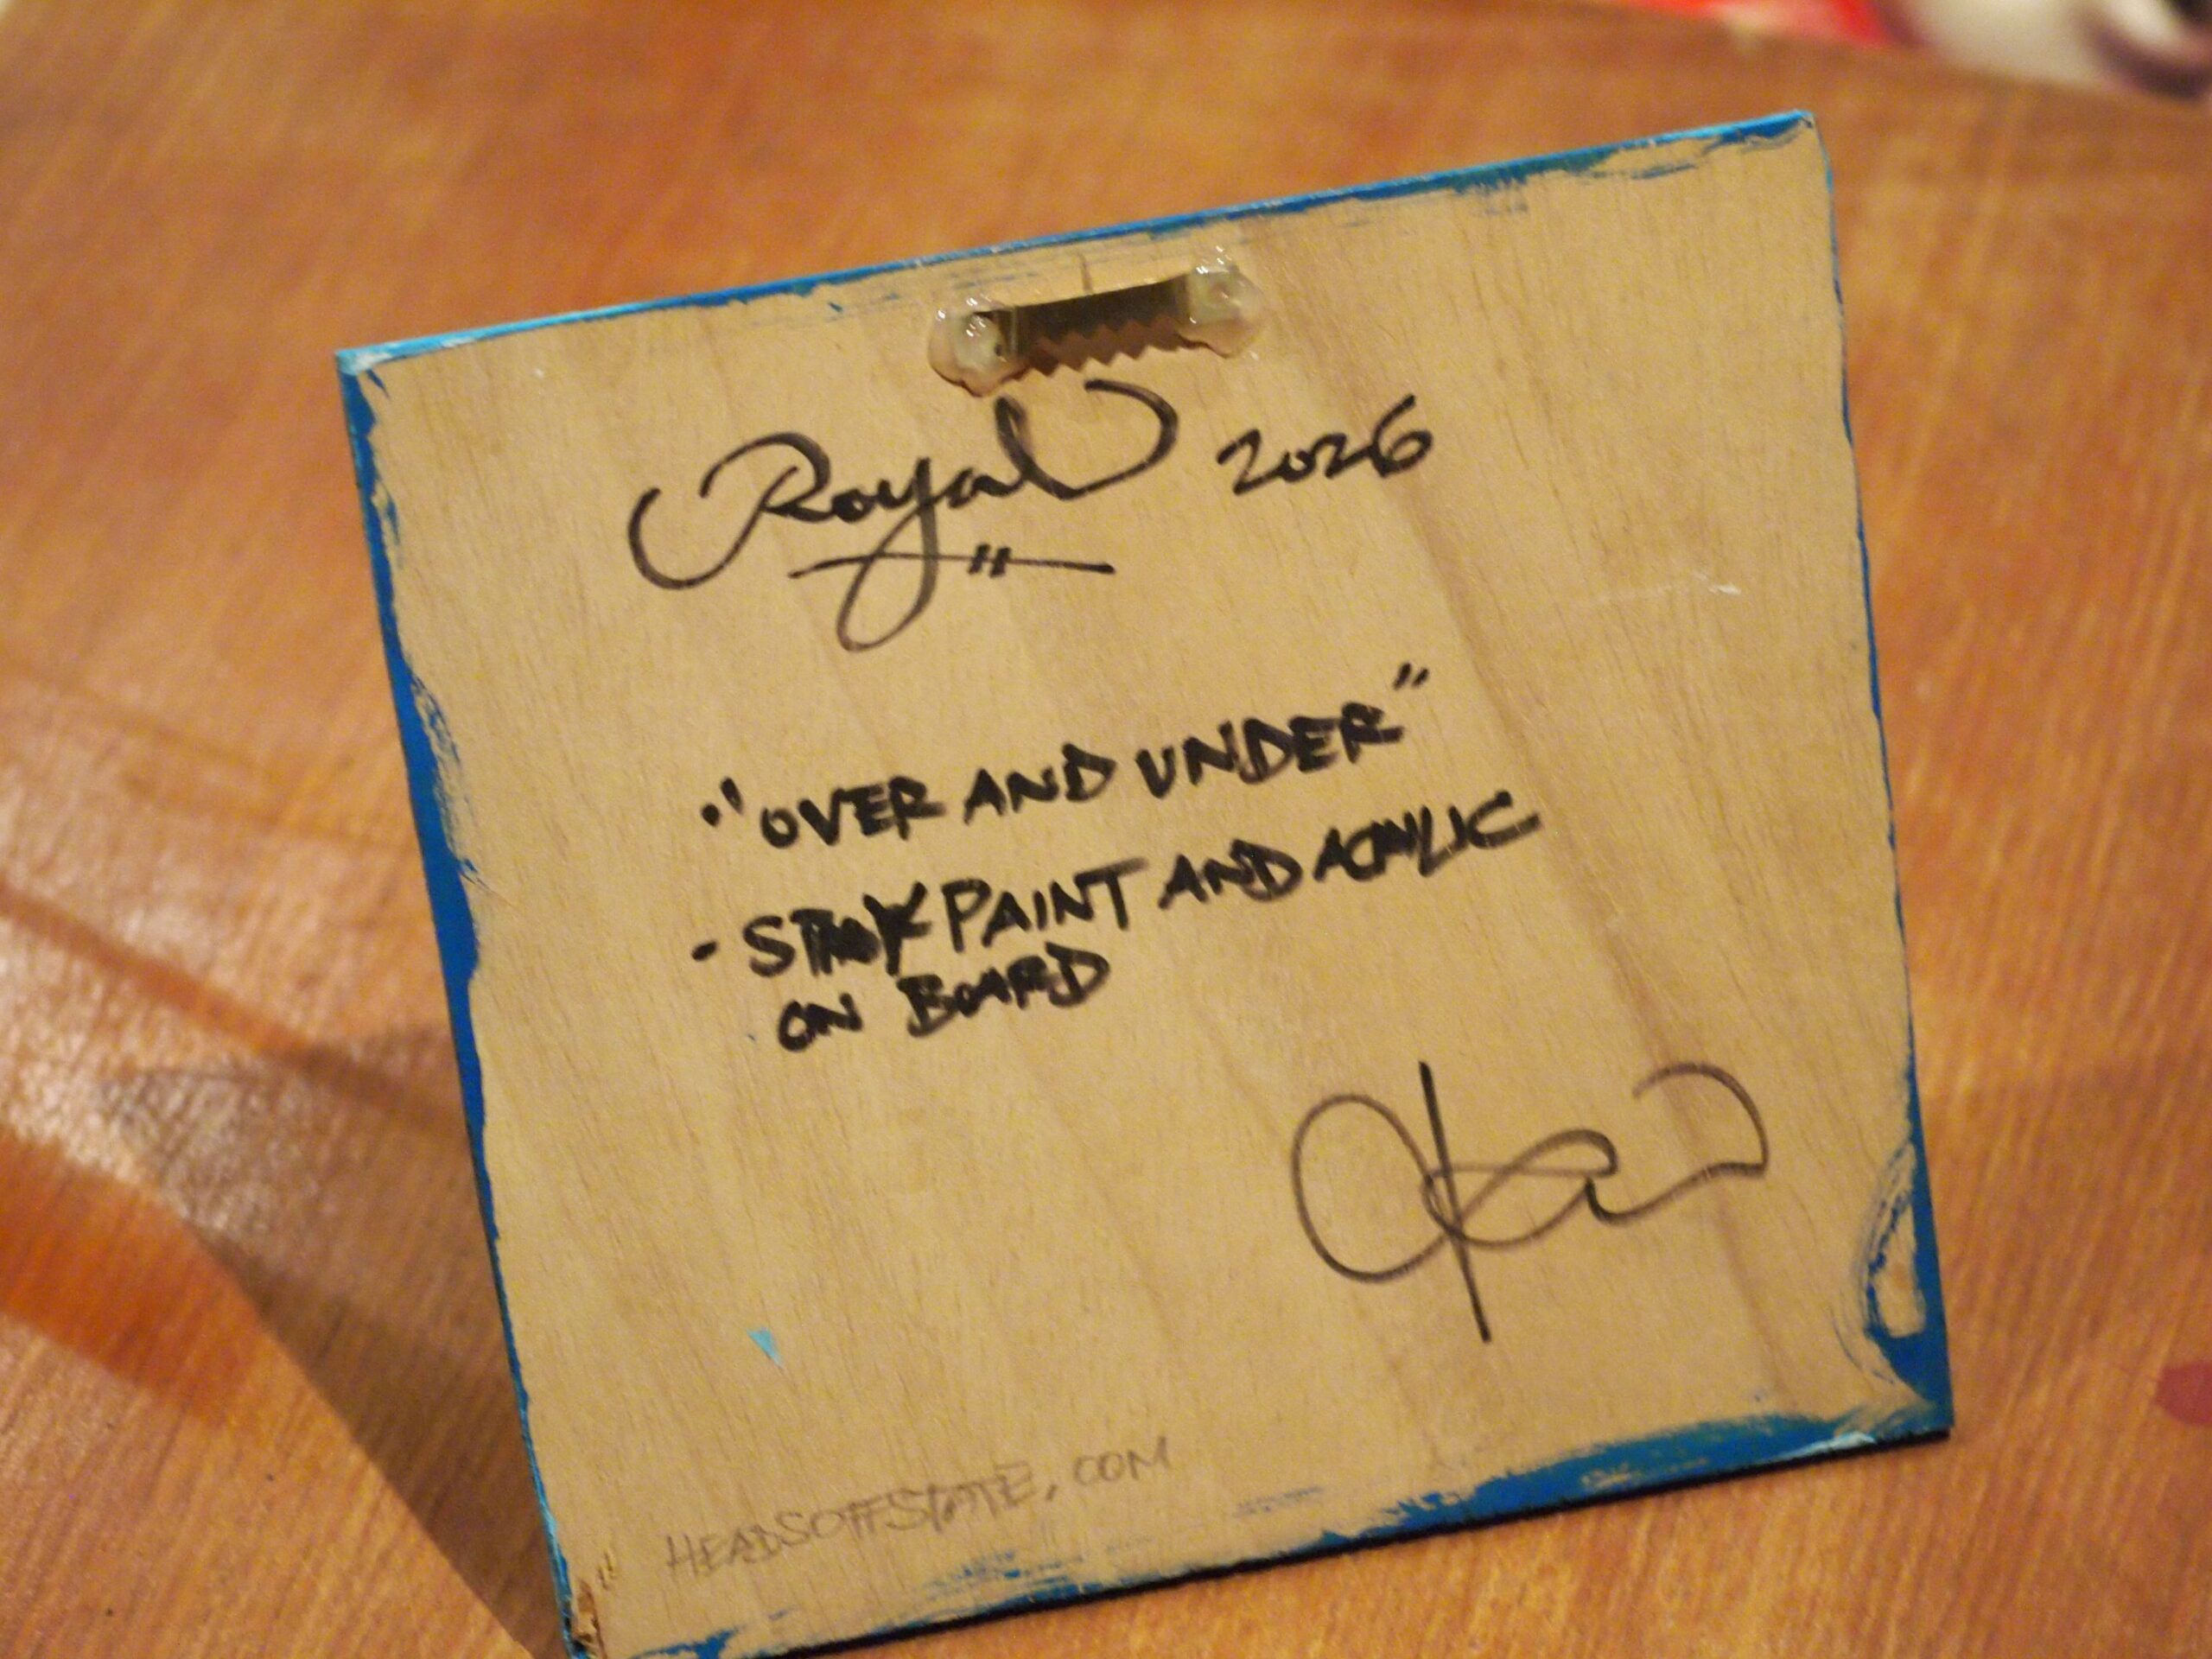 Royal 2026
"OVER AND UNDER"
- SPRAY PAINT AND ACRYLIC
ON BOARD
HEADSOFFSTATE.COM